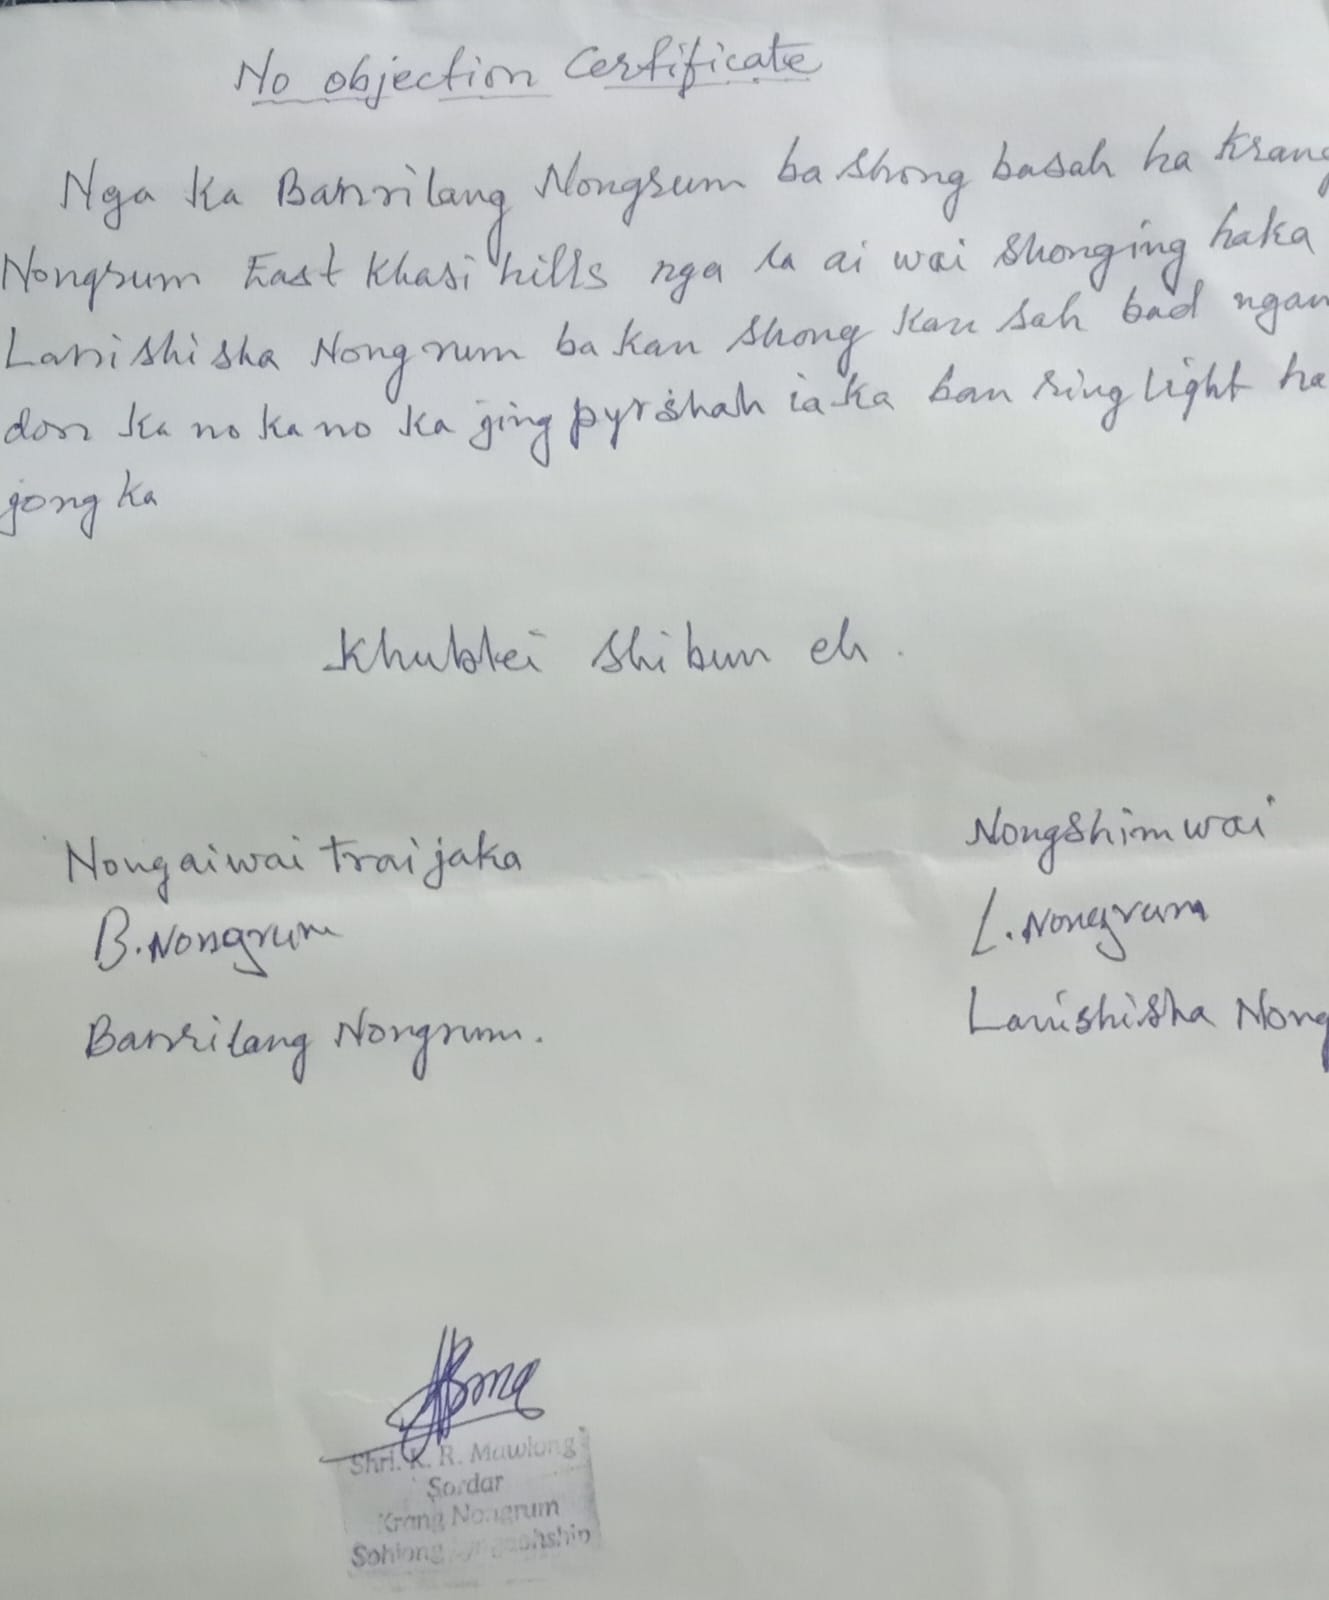 No objection Certificate
Nga ka Banrilang Nongrum ba shong basah ha Krang
Nongrum East Khasi hills nga la ai wai shonging haka
Larishisha Nongrum ba kan shong kan sah bad ngan
don ka no ka no ka jing pyrshah ia ka ban ring light ha
jong ka
Khublei shi bun eh.
Nongaiwai trai jaka
Nongshim wai
B. Nongrum
L. Nongrum
Banrilang Nongrum.
Larishisha Nong
Shri. K. R. Mawlong
Sordar
Krang Nongrum
Sohiong